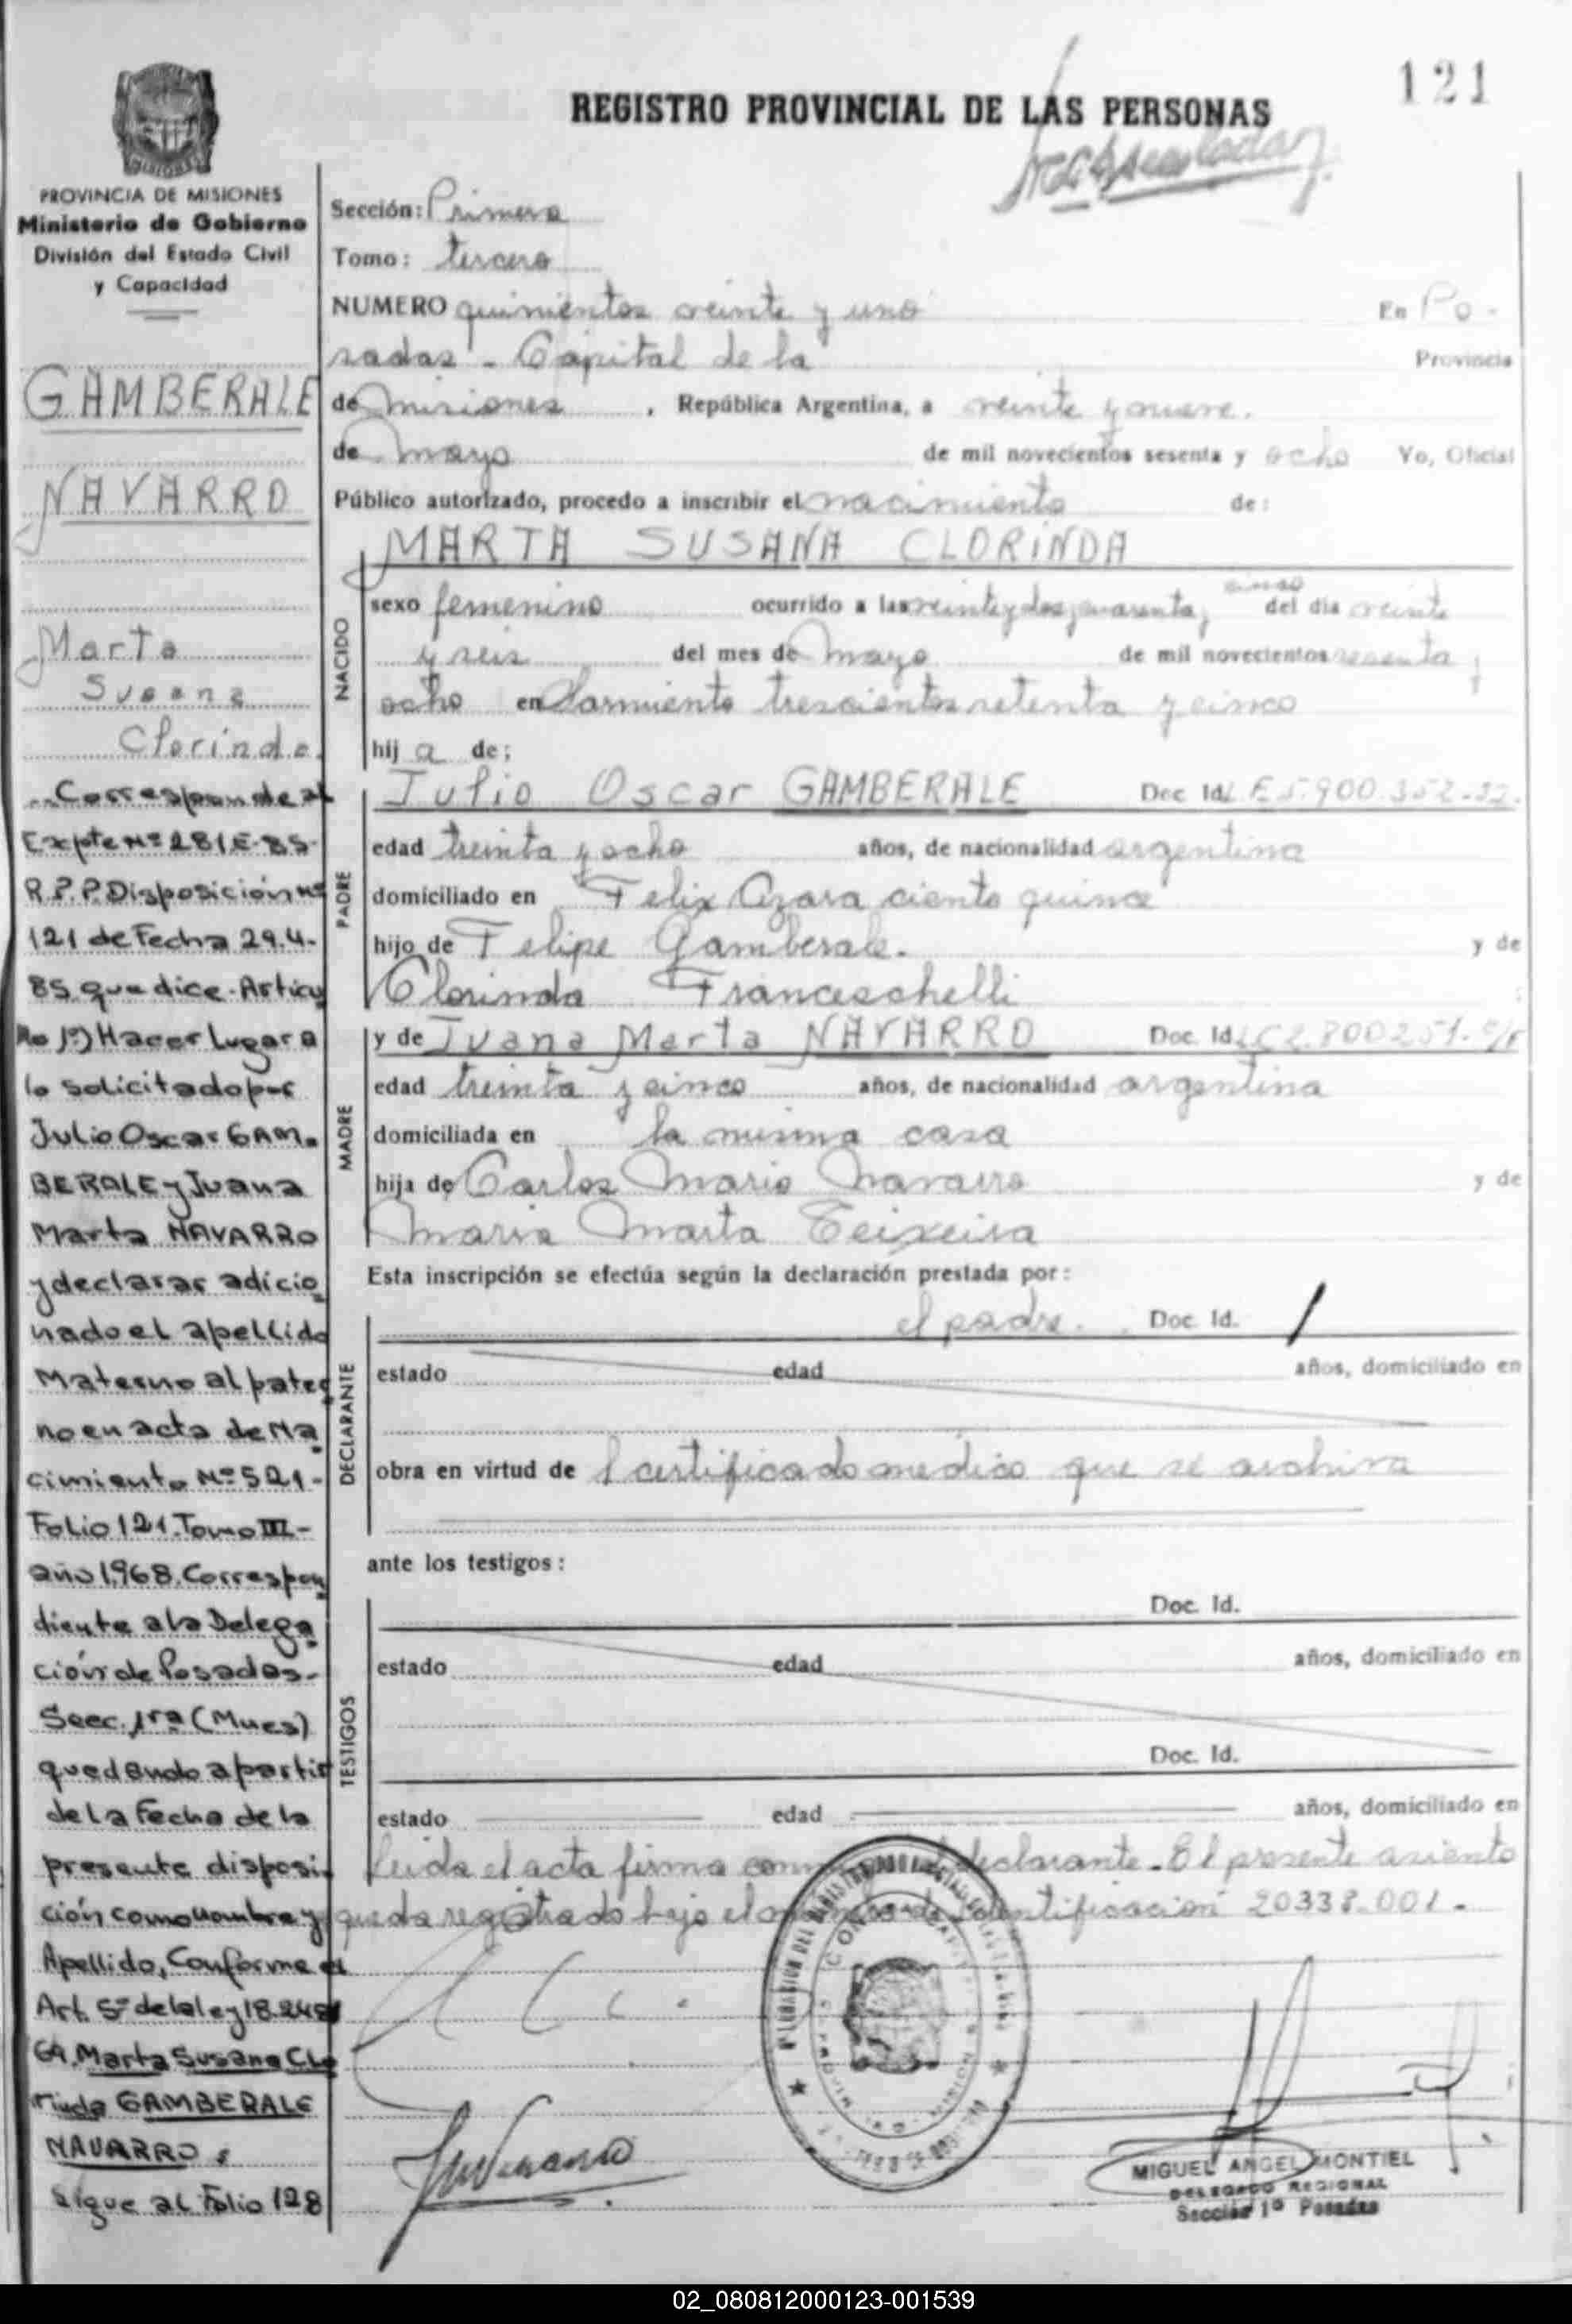 121
REGISTRO PROVINCIAL DE LAS PERSONAS
PROVINCIA DE MISIONES
Ministerio de Gobierno
División del Estado Civil
y Capacidad
GAMBERALE
NAVARRO
Marta
Susana
Clorinda
Corresponde al
Expte Nº 281E-85-
R.P.P. Disposición Nº
121 de Fecha 29.4-
85 que dice-Artícu
lo 1º) Hacer lugar a
lo solicitado por
Julio Oscar GAM
BERALE y Juana
Marta NAVARRO
y declarar adicio
nado el apellido
Materno al pater
no en acta de Na
cimiento Nº 521-
Folio 121 Tomo III-
año 1.968. Correspon
diente a la Delega
ción de Posadas-
Secc. 1ra (Mnes)
quedando a partir
de la Fecha de la
presente disposi
ción como nombre y
Apellido, Conforme el
Art. 5º de la ley 18.248
69. Marta Susana Clo
rinda GAMBERALE
NAVARRO.
Sigue al Folio 128
Sección: Primera
Tomo: tercero
NUMERO quinientos veinte y uno En Po-
sadas - Capital de la Provincia
de Misiones, República Argentina, a veinte y nueve.
de Mayo de mil novecientos sesenta y ocho Yo, Oficial
Público autorizado, procedo a inscribir el nacimiento de:
MARTA SUSANA CLORINDA
NACIDO
cinco
sexo femenino ocurrido a las veinte y dos y cuarenta y del día veinte
y seis del mes de Mayo de mil novecientos sesenta y
ocho en Sarmiento trescientos setenta y cinco
hij a de;
PADRE
Julio Oscar GAMBERALE Doc Id. L.E 5.900.352
edad treinta y ocho años, de nacionalidad argentina
domiciliado en Felix Azara ciento quince
hijo de Felipe Gamberale. y de
Clorinda Franceschelli
MADRE
y de Juana Marta NAVARRO Doc. Id. LC 2.800251
edad treinta y cinco años, de nacionalidad argentina
domiciliada en la misma casa
hija de Carlos Mario Navarro y de
Maria Marta Teixeira
Esta inscripción se efectúa según la declaración prestada por:
DECLARANTE
el padre. Doc. Id.
estado edad años, domiciliado en
obra en virtud de l certificado medico que se archiva
ante los testigos:
TESTIGOS
Doc. Id.
estado edad años, domiciliado en
Doc. Id.
estado edad años, domiciliado en
Leida el acta firma declarante. El presente asiento
queda registrado bajo el de identificación 20338.001.-
MIGUEL ANGEL MONTIEL
DELEGADO REGIONAL
Sección 1º Posadas
02_080812000123-001539